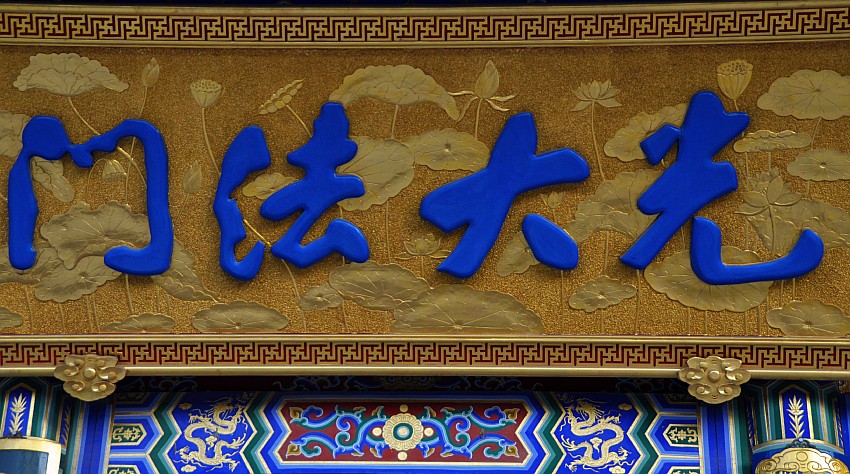 光大法门